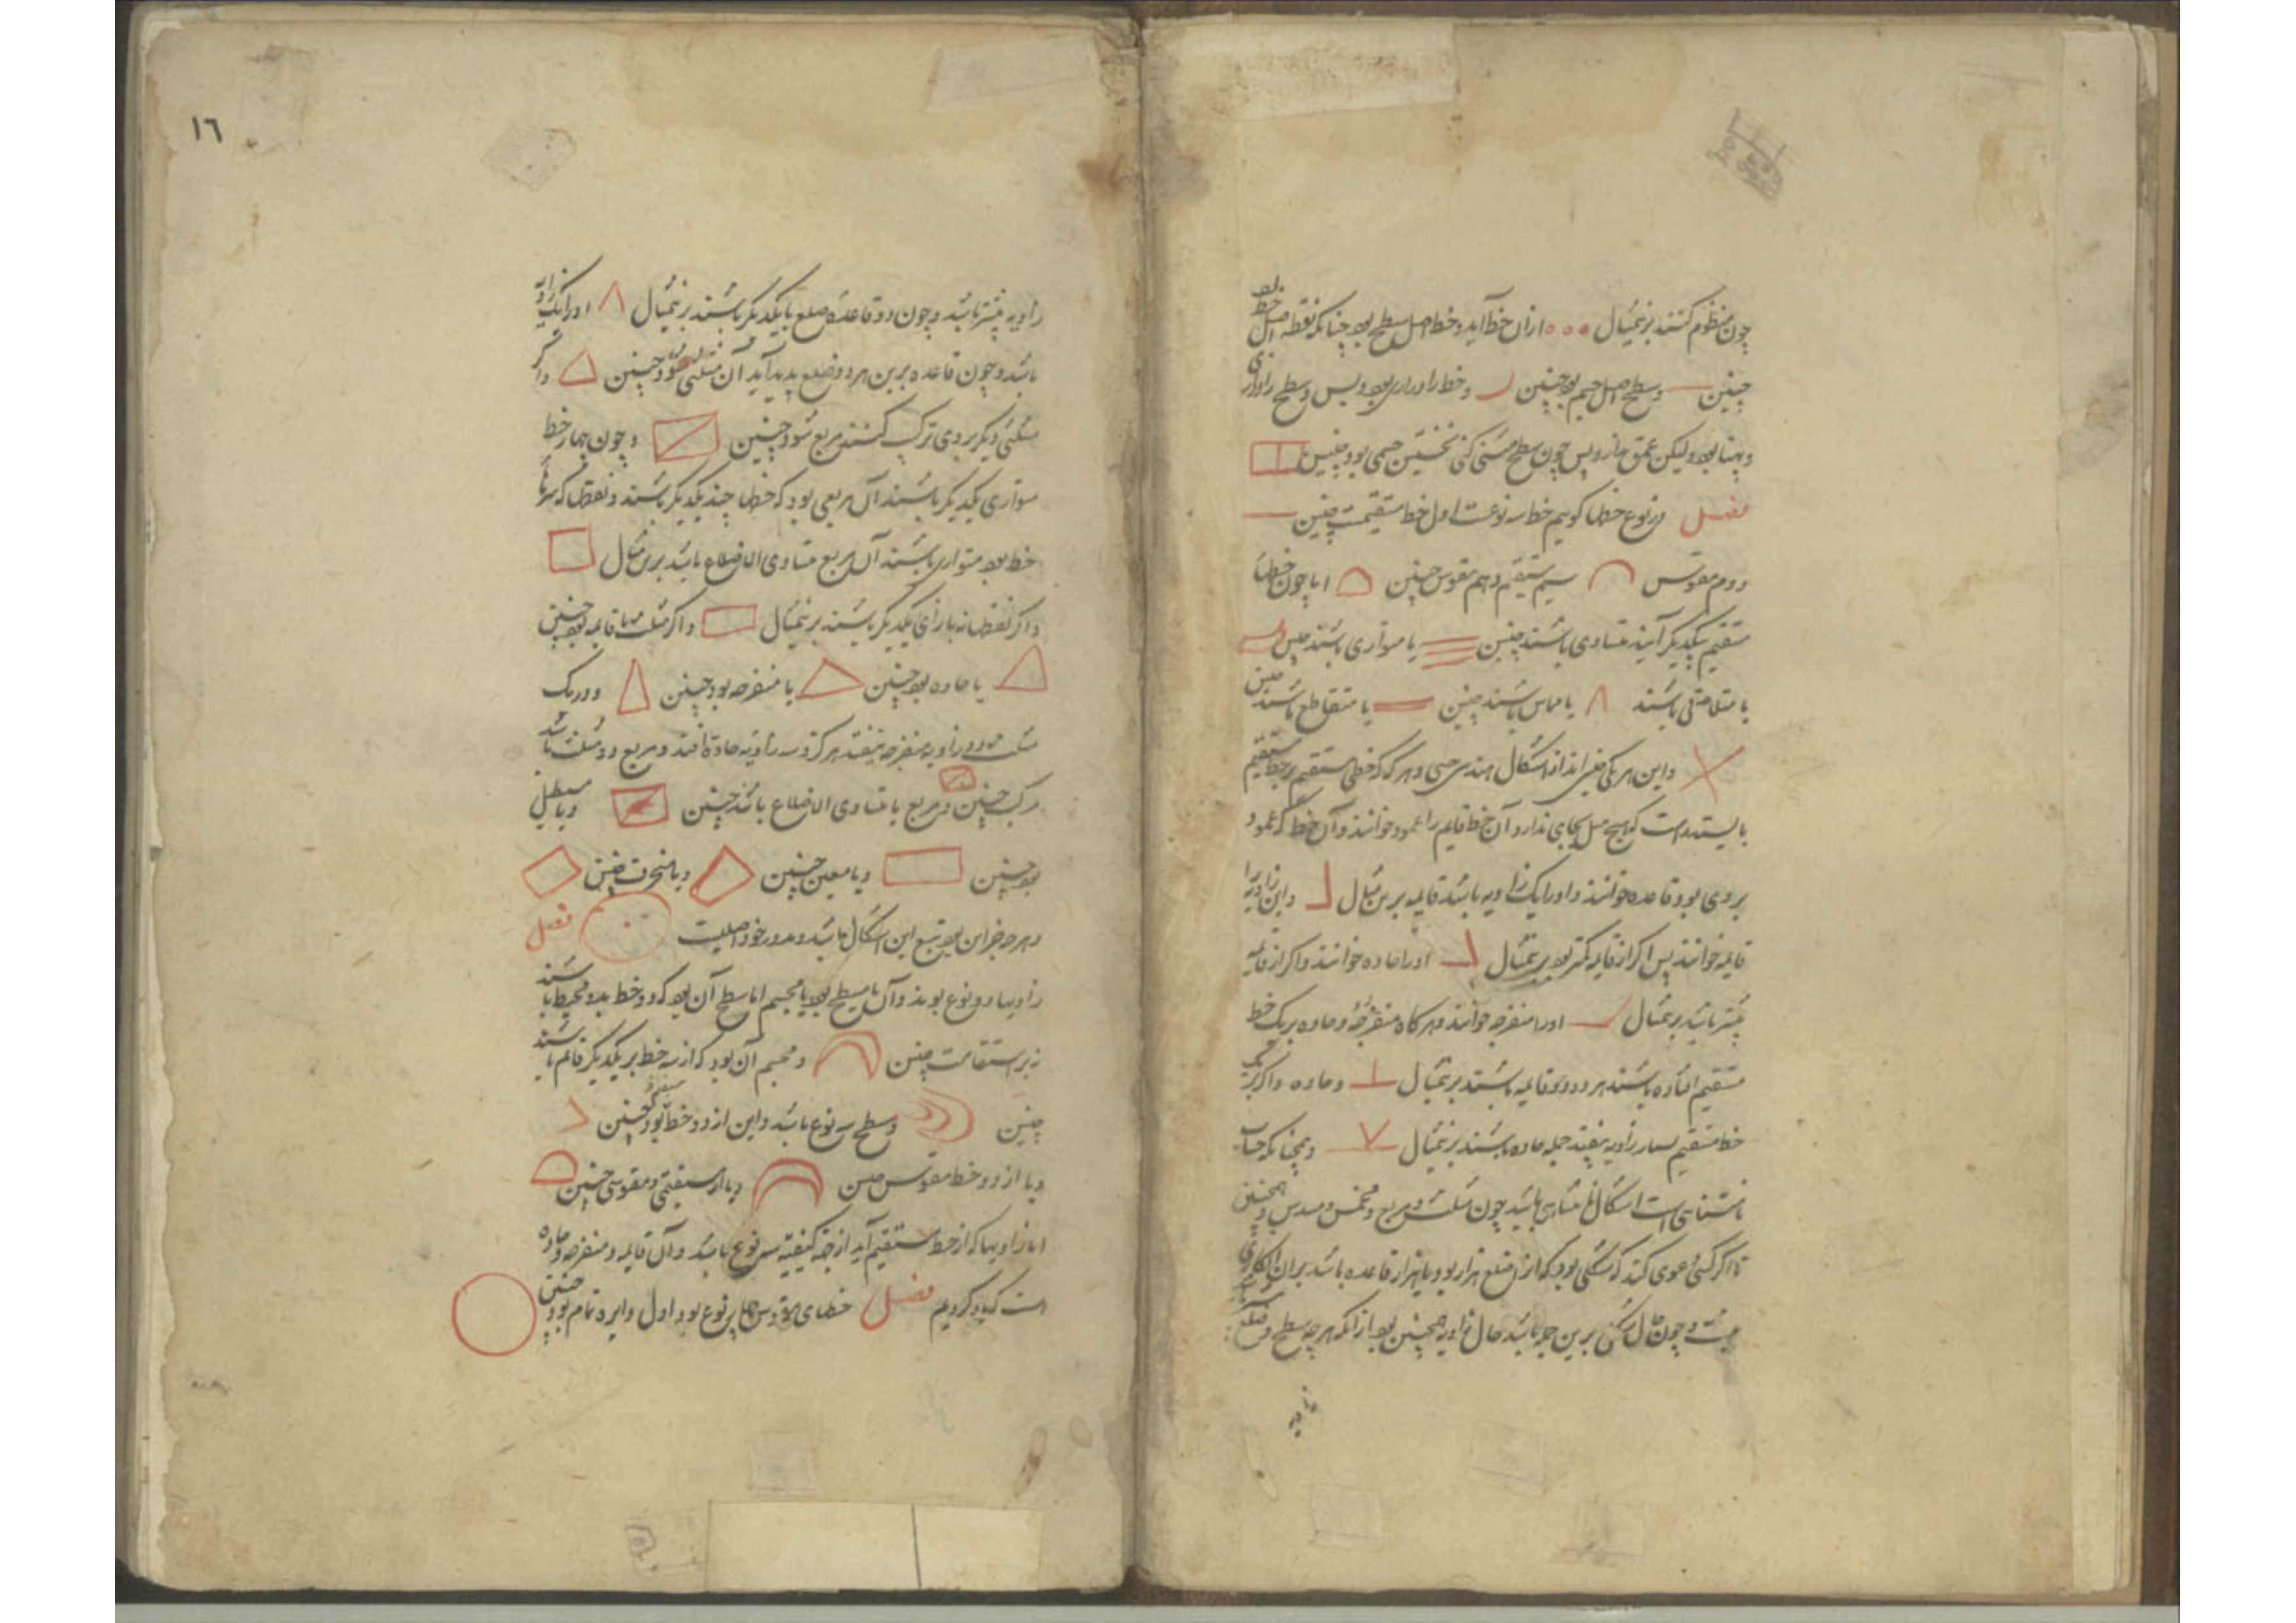 چون منظوم کنند برین مثال ازان خط آید و خط اصل سطح بود چنانکه نقطه اصل خط بود
چنین وسطح اصل جسم بود چنین و خط را درازی بود و بس و سطح را درازی
و پهنا بود ولیکن عمق ندارد پس چون سطح مثنی کنی نخستین جسمی بود چنین
فصل در نوع خطها کویيم خط سه نوعست اول خط مستقیمست چنین
دوم مقوس سیم مستقیم و هم مقوس چنین اما چون خطهاء
مستقیم بیکدیکر آیند متساوی باشند چنین یا متوازی باشند چنین
یا متلاقی باشند یا مماس باشند چنین یا متقاطع باشند چنین
و این هر یکی اند از اشکال هندسی حسی و هر که که خطی مستقیم بر خط مستقیم
بایستد است که هیچ میل بجایی ندارد آن خط قایم را عمود خوانند و آن خط که عمود
بر وی بود قاعده خوانند و او را یک زاویه باشد قایمه برین مثال و این زاویه را
قایمه خوانند پس اکر از قایمه کمتر بود برین مثال او را حاده خوانند و اکر از قایمه
بیشتر باشد برین مثال او را منفرجه خوانند و هرکاه منفرجه و حاده بر یک خط
مستقیم افتاده باشند هر دو دو قایمه باشند برین مثال و حاده و اکر بر یک
خط مستقیم بسیار زاویه بیفتد جمله حاده باشند برین مثال و همچنانکه حساب
نامتناهی است اشکال نامتناهی باشد چون مثلث و مربع و مخمس و مسدس و همچنین
تا اکر کسی دعوی کند که شکلی بود که از ضلع هزار بود یا هزار قاعده باشد بران انکاری
نیست و چون حال شکل برین جمله باشد حال زاویه همچنین بود از آنکه هر چه سطح و ضلع
زاویه
١٦
زاویه بیشتر باشد و چون دو قاعده ضلع با یکدیکر باشند برین مثال او را یک زاویه
باشد و چون قاعده برین هر دو ضلع پدید آید آن مثلثی شود چنین و اکر
مثلثی دیکر بر وی ترکیب کنند مربع شود چنین و چون چهار خط
متوازی یکدیکر باشند آن مربعی بود که خطها چند یکدیکر باشند و نقطها که سرهاء
خط بود متوازی باشند آن مربع متساوی الاضلاع باشد برین مثال
و اکر نقطها نه بازای یکدیکر باشند برین مثال و اکر مثلث قایمه بود چنین
یا حاده بود چنین یا منفرجه بود چنین و در یک
مثلث دو زاویه منفرجه نیفتد هرکز و سه زاویه حاده افتد و مربع دو مثلث باشد
مرکب چنین و مربع یا متساوی الاضلاع باشد چنین و یا مستطیل
بود چنین و یا معین چنین و یا منحرف چنین
و هر چه جز این بود تبع این اشکال باشد و مدور خود اصلیست فصل
زاویها دو نوع بود و آن یا مسطح بود یا مجسم اما مسطح آن بود که دو خط بدو محیط باشند
نه بر استقامت چنین و مجسم آن بود که از سه خط بر یکدیکر قایم باشند
چنین و مسطح سه نوع باشد و این از دو خط مستقیم بود چنین
و یا از دو خط مقوس چنین و یا از مستقیمی و مقوسی چنین
اما زاویها که از خط مستقیم آید از جهة کیفیت سه نوع باشد و آن قایمه و منفرجه و حاده
است که یاد کردیم فصل خطهای مقوس چهار نوع بود اول دایره تمام بود چنین